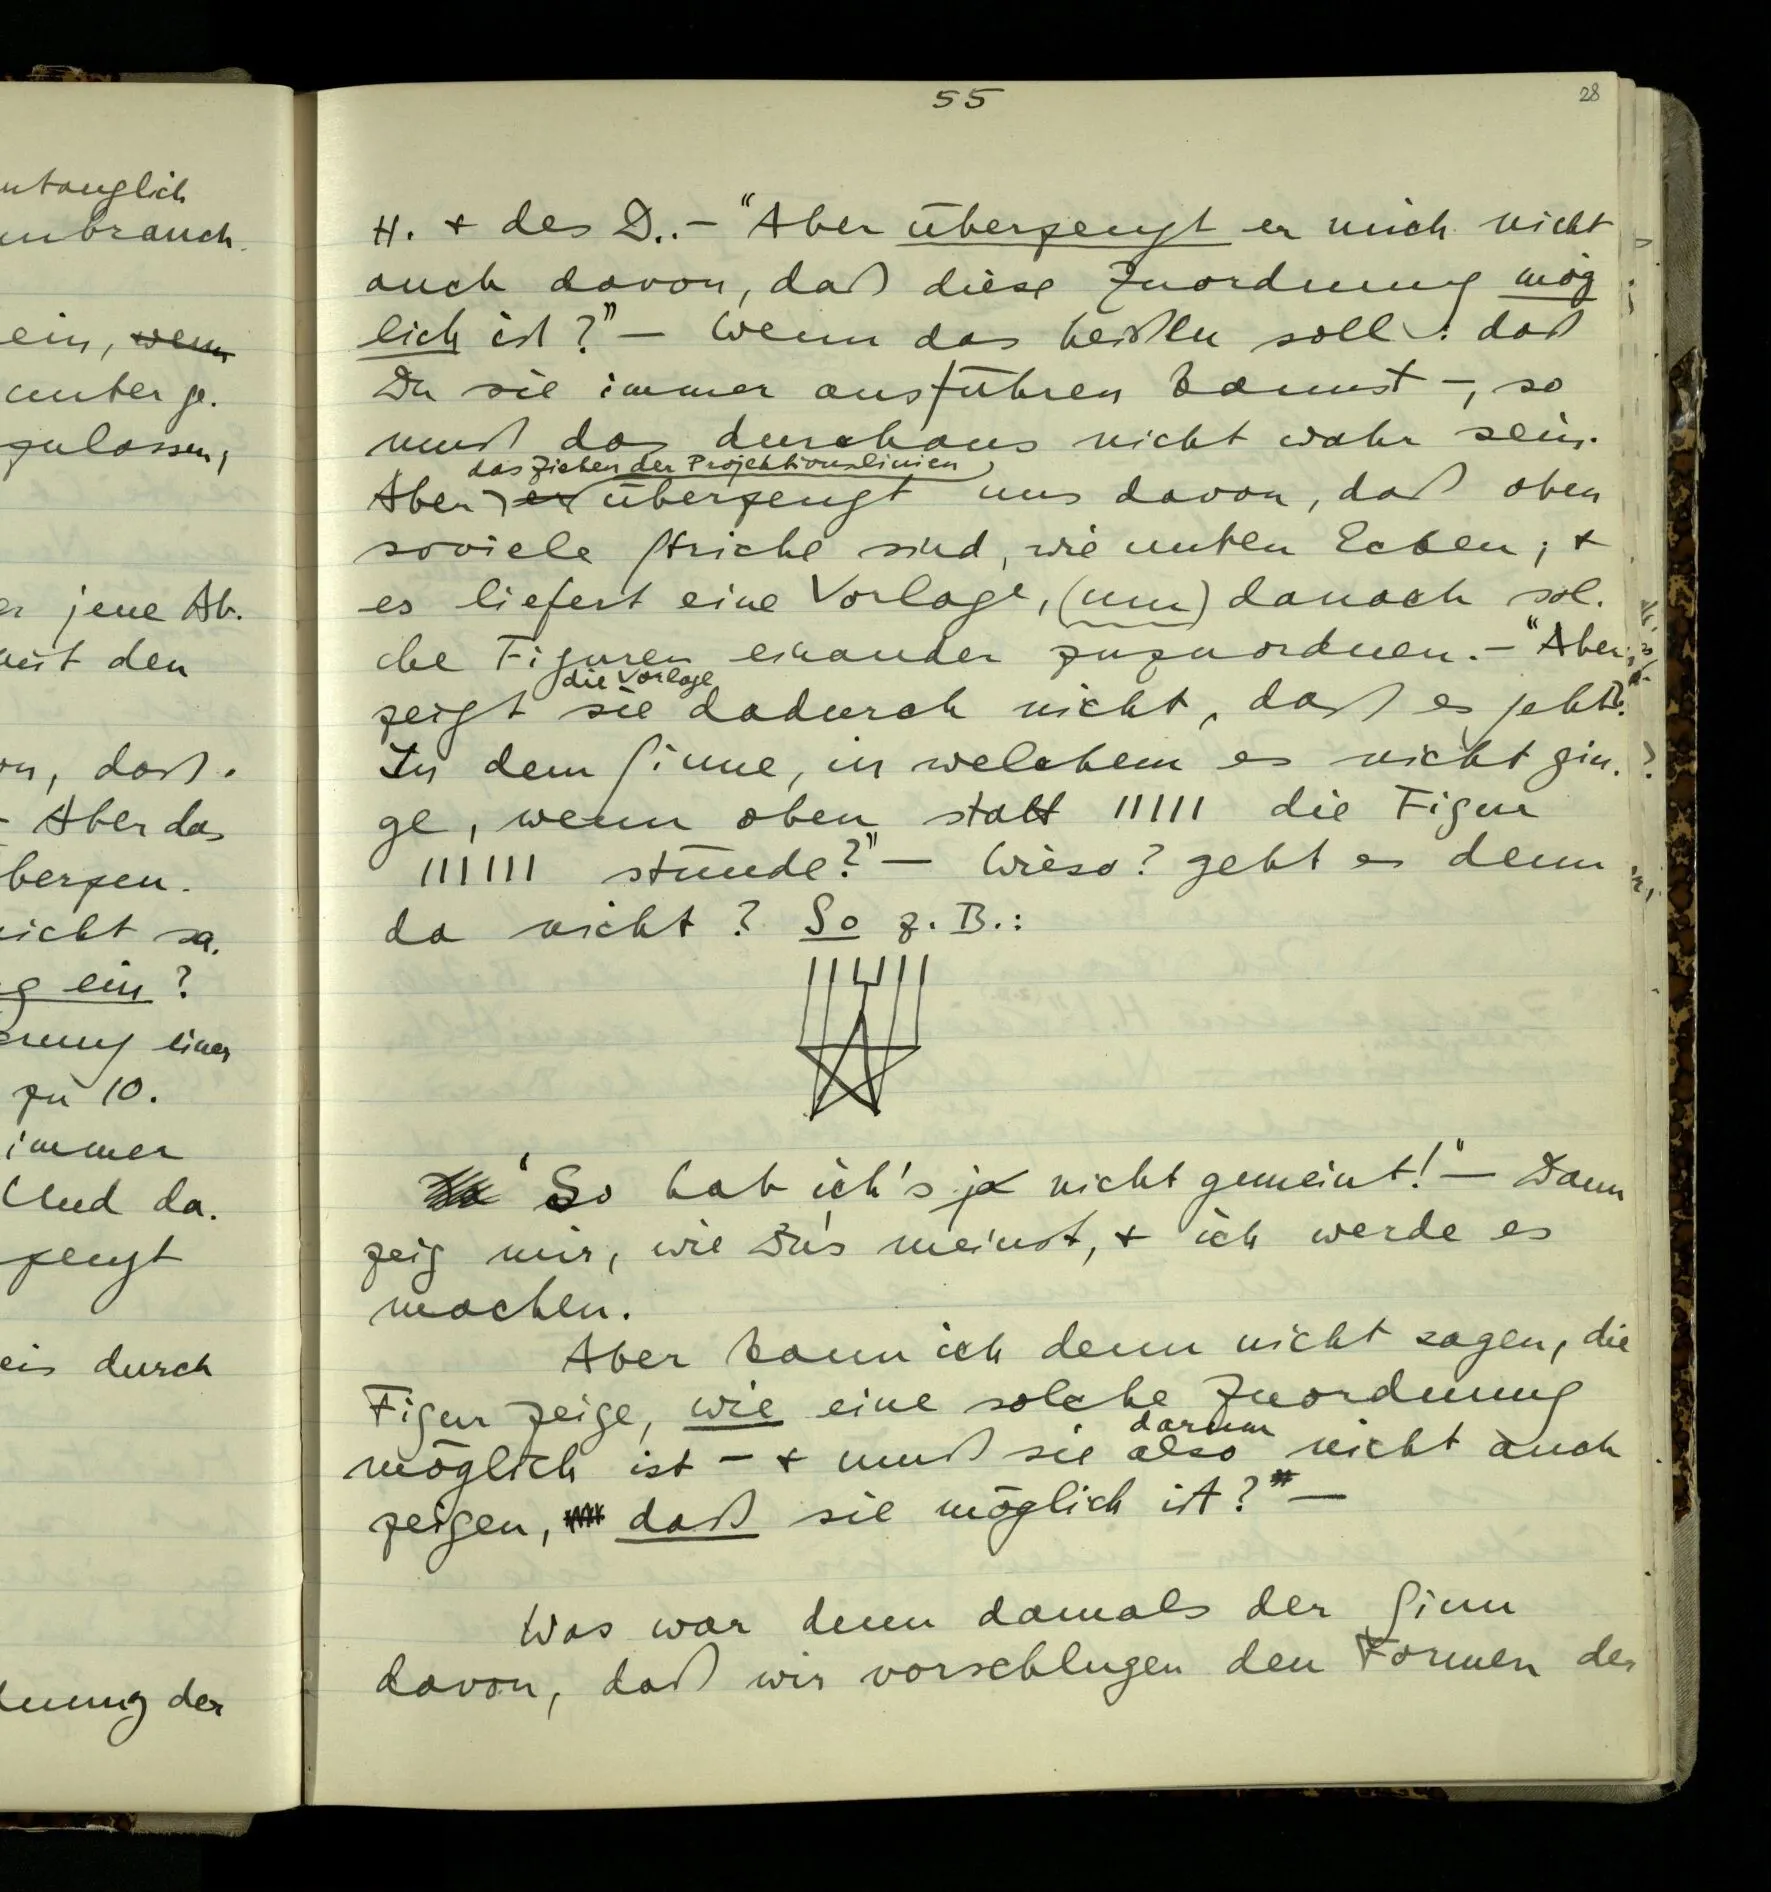 ntauglich
nbrauch.
ein, wenn
unter je.
zulassen,
er jene Ab.
mit den
on, daß.
– Aber das
berzeu.
nicht sa.
g ein?
erung einer
zu 10.
immer
Und da.
zeugt
eis durch
dnung der
55
28
H. + des D.. – "Aber überzeugt er mich nicht
auch davon, daß diese Zuordnung mög
lich ist?" – Wenn das heißen soll: daß
Du sie immer ausführen kannst –, so
muß das durchaus nicht wahr sein.
das Ziehen der Projektionslinien
Aber er überzeugt uns davon, daß oben
soviele Striche sind, wie unten Ecken; +
es liefert eine Vorlage, (um) danach sol.
che Figuren einander zuzuordnen. – "Aber
die Vorlage
zeigt sie dadurch nicht, daß es geht?
In dem Sinne, in welchem es nicht gin.
ge, wenn oben statt ||||| die Figur
|||||| stünde?" – Wieso? geht es denn
da nicht? So z. B.:
"So hab ich's ja nicht gemeint!" – Dann
zeig mir, wie Du's meinst, + ich werde es
machen.
Aber kann ich denn nicht sagen, die
Figur zeige, wie eine solche Zuordnung
darum
möglich ist – + muß sie also nicht auch
zeigen, daß sie möglich ist?" –
Was war denn damals der Sinn
davon, daß wir vorschlugen den Formen der